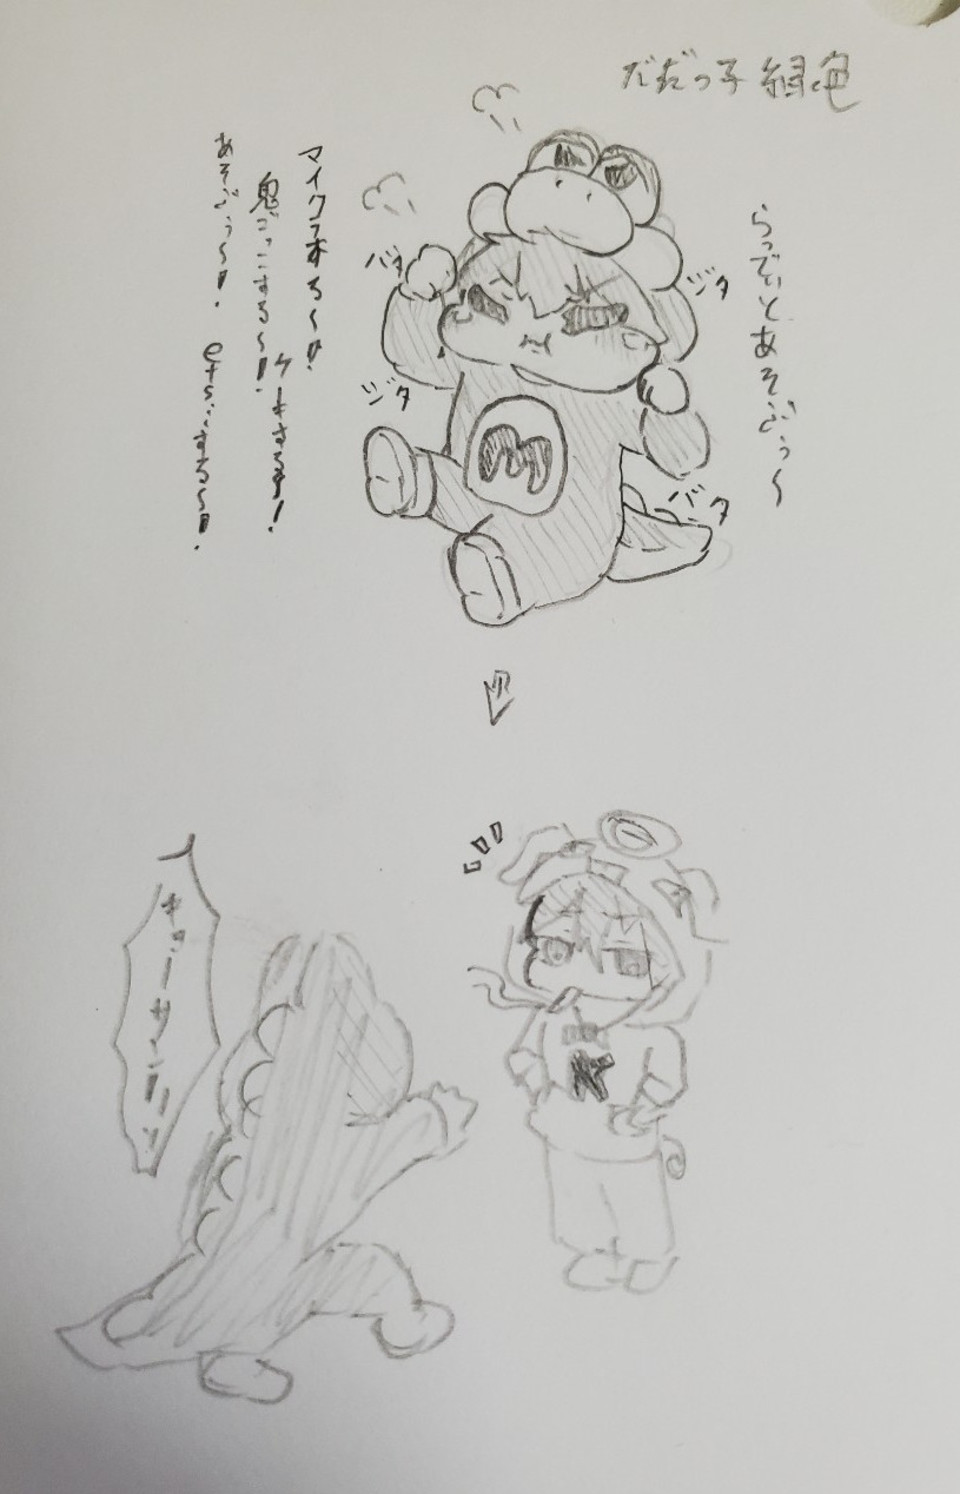 だだっ子緑色
らっでぃとあそぶぅ〜
マイクラする〜!!
鬼ごっこする〜!!
ケーキする!!
あそぶぅ〜!!
する〜!!
バタ
ジタ
ジタ
バタ
M
キョーサン!!
K